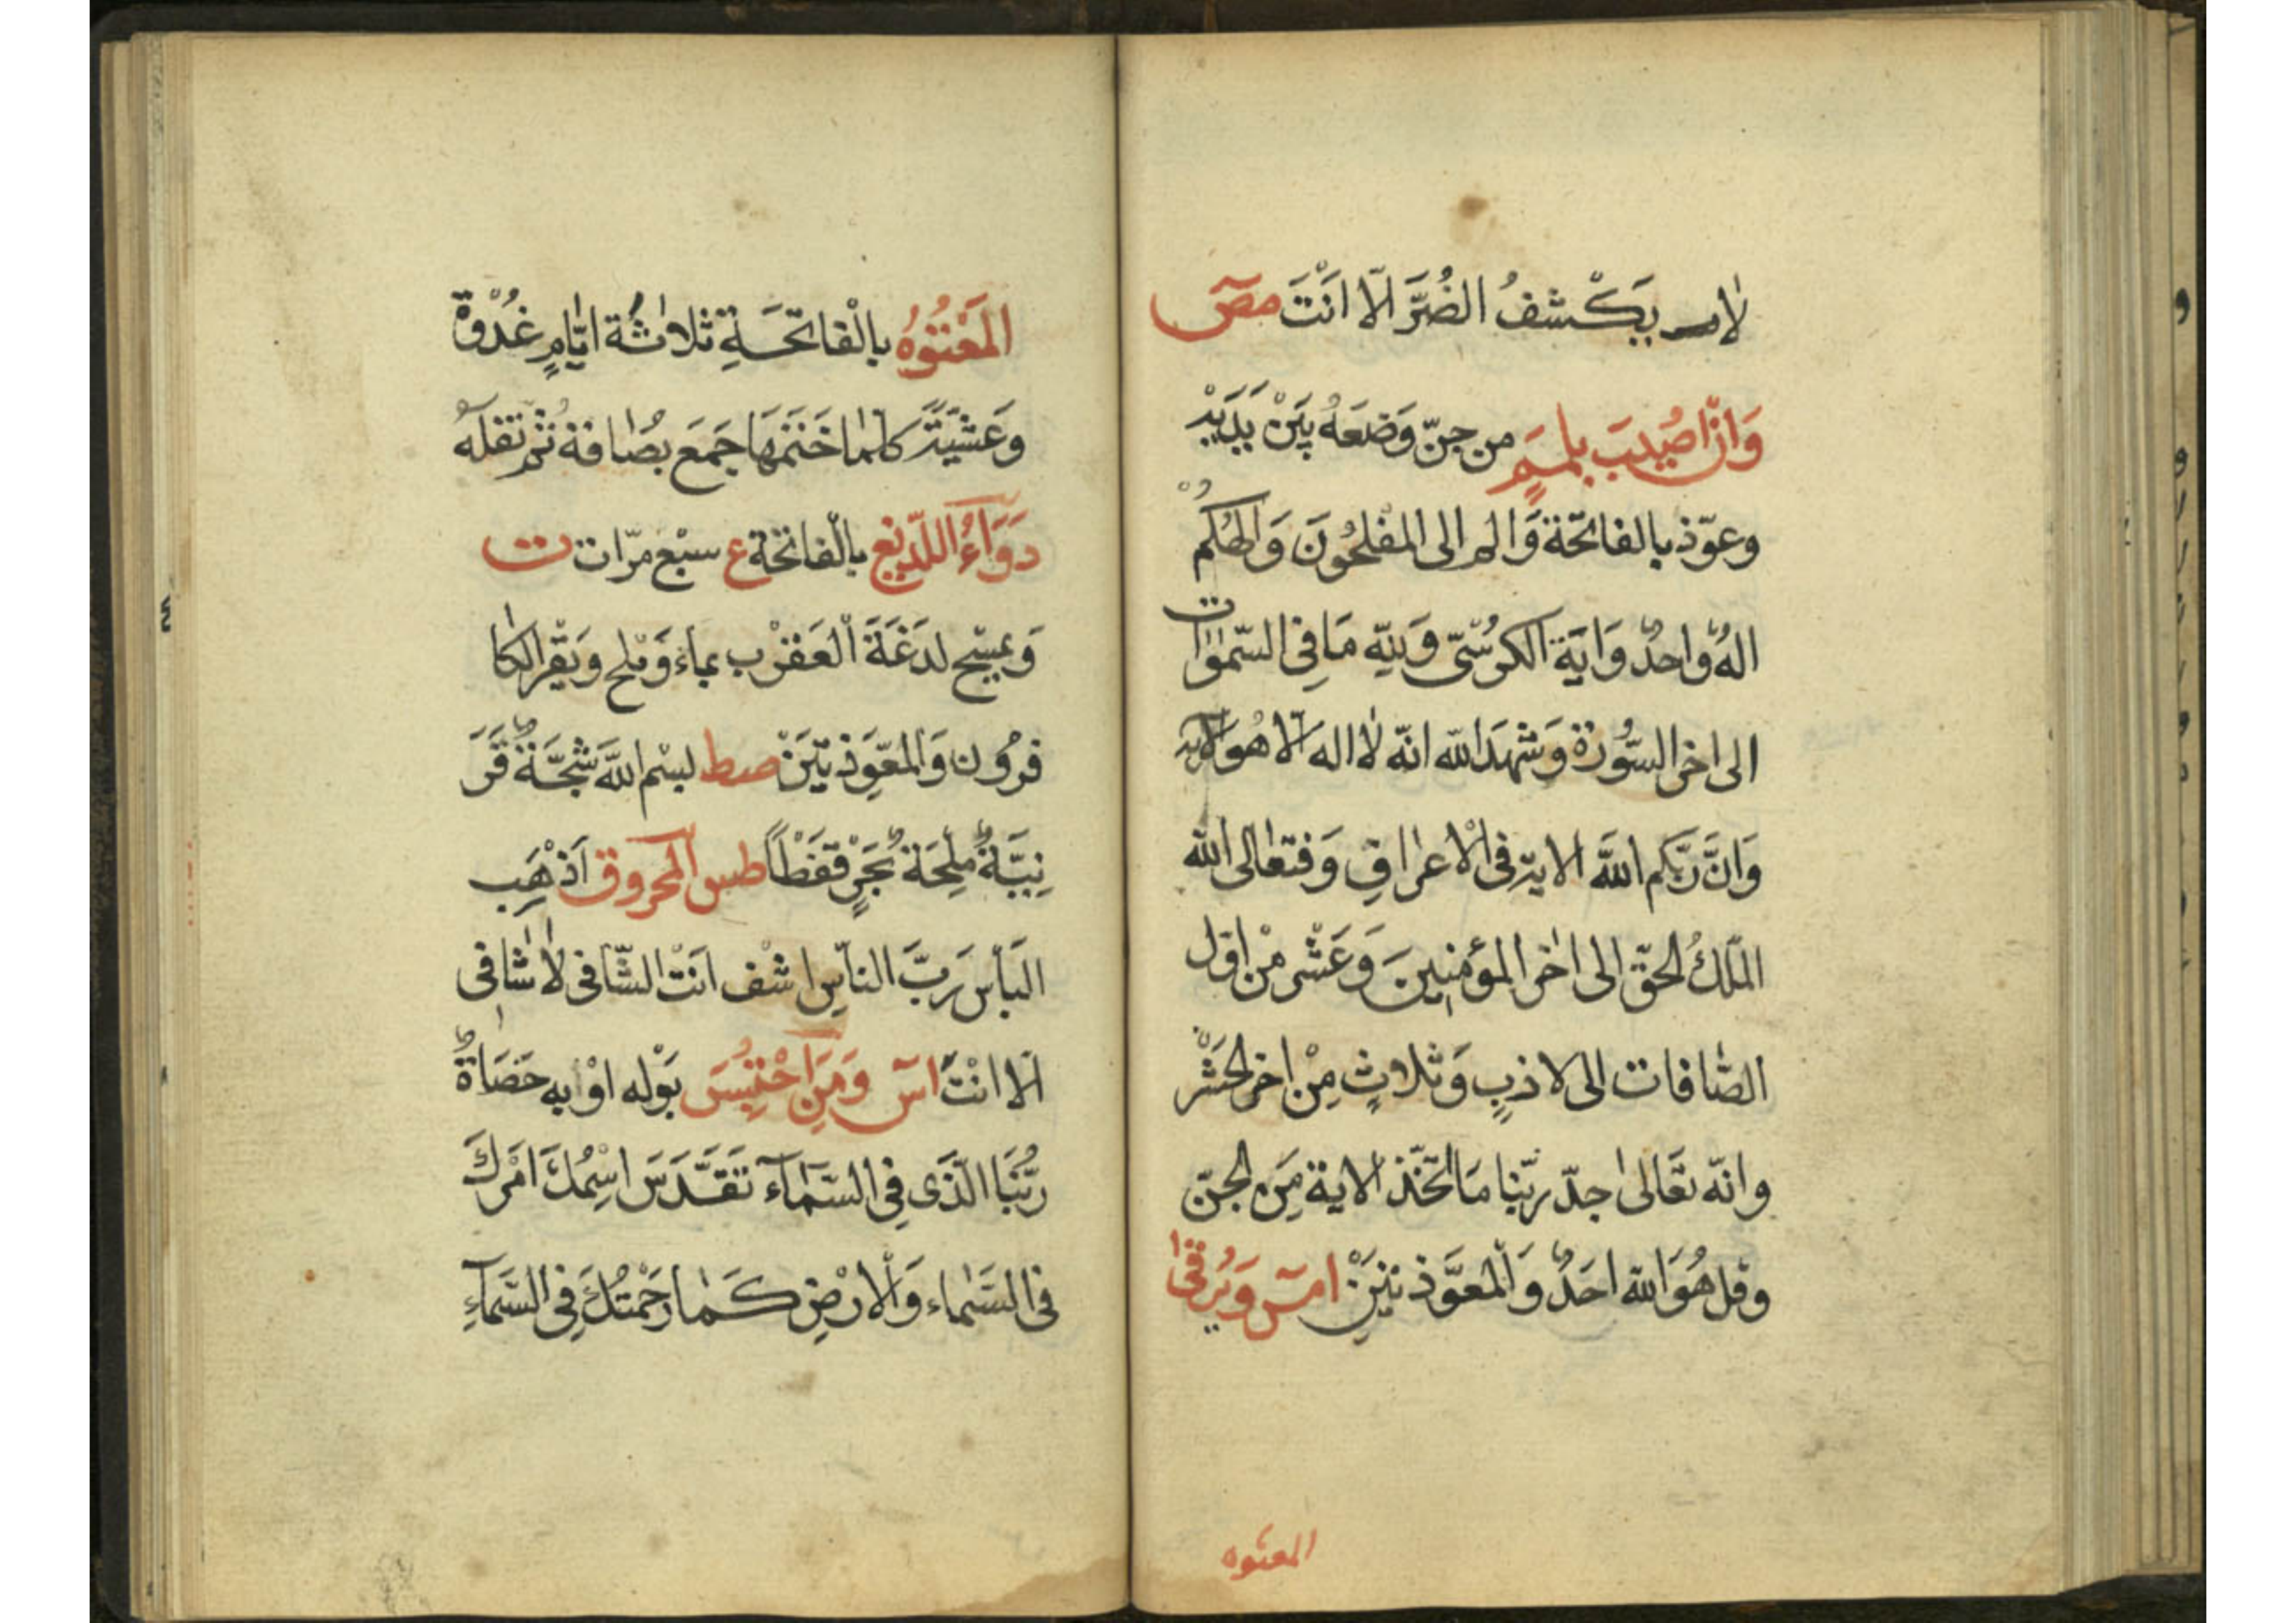 لا يكشفُ الضُرَّ الّا اَنْتَ مص
وَاِنْ اُصِيبَ بلممٍ من جنّ وَضعَهُ بَيْنَ يَدَيْهِ
وعوّذ بالفاتحة وَالم الى المفلحُونَ وَالهُكم
الهٌ واحدٌ وَاية الكرسُىّ وَلِلّه مَا فِى السّمٰوٰات
الى اخر السُّورة وَشهدَ الله انّه لا اله الّا هُوَ الاية
وَانَّ رَبّكم اللّهَ الاية فى الْاعراف وَفتعالى الله
الملكُ الحقّ الى اخر المؤمنِينَ وَعَشْر مْن اوّل
الصّافات الى لازبٍ وَثلاثٍ مِنْ اخر الحَشْر
وانّه تعَالىٰ جدّ ربّنا مَا اتّخذ الاية مِنَ الجنّ
وقل هُوَ الله احَدٌ وَالْمعَوّذتَيْنِ امس وَيُرقى
المعتوه
المَعْتُوْهُ بالْفاتحَةِ ثلاثة ايّامٍ غُدْوةً
وَعَشيّةً كلما خَتَمَهَا جَمَعَ بُصَاقهُ ثم تفلهُ
دَوَاءُ اللّديغ بالْفاتحة ع سبْع مرّات ت
وَيمسَح لدَغَةَ الْعَقْرب بماء وَملح وَيَقْرا الكا
فرُون وَالمعّوِذتَيْنَ صط بسْم اللّه شَجّةٌ قَرَ
نِيّةٌ ملْحَة بَحْرٍ قفْطَا طس المحروق اَذْهَب
البَاْس رَبَّ الناسِ اشْف انَتْ الشّافى لَا شَافى
الّا انْتَ اس وَمَنِ احْتُبِسَ بَوْله اوْ به حَصَاةٌ
ربُّنَا الّذَى فى السّمَآء تَقَدَّسَ اسْمُكَ امْرك
فى السّمَاء وَالْارْضِ كَمَا رَحْمتُكَ فِى السَّمَآءِ